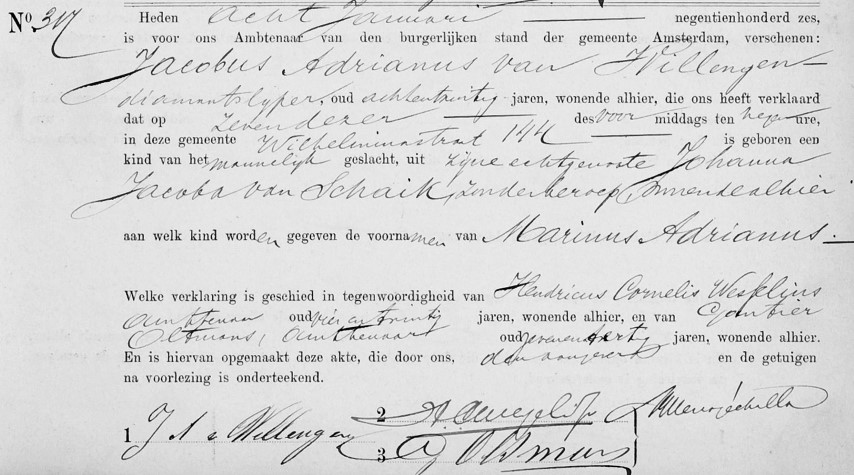 No. 317 Heden acht Januari negentienhonderd zes,
is voor ons Ambtenaar van den burgerlijken stand der gemeente Amsterdam, verschenen:
Jacobus Adrianus van Willengen
diamantslyper, oud achtentwintig jaren, wonende alhier, die ons heeft verklaard
dat op zeven dezer des voor middags ten ure,
in deze gemeente Wilhelminastraat 144 is geboren een
kind van het mannelijk geslacht, uit zijne echtgenoote Johanna
Jacoba van Schaik, zonder beroep, wonende alhier
aan welk kind worden gegeven de voornamen van Marinus Adrianus.
Welke verklaring is geschied in tegenwoordigheid van Hendricus Cornelis
ambtenaar oud vier en dertig jaren, wonende alhier, en van
Oltmans, ambtenaar oud jaren, wonende alhier.
En is hiervan opgemaakt deze akte, die door ons, den aangever en de getuigen
na voorlezing is onderteekend.
1 J A v Willengen 2
3 Oltmans